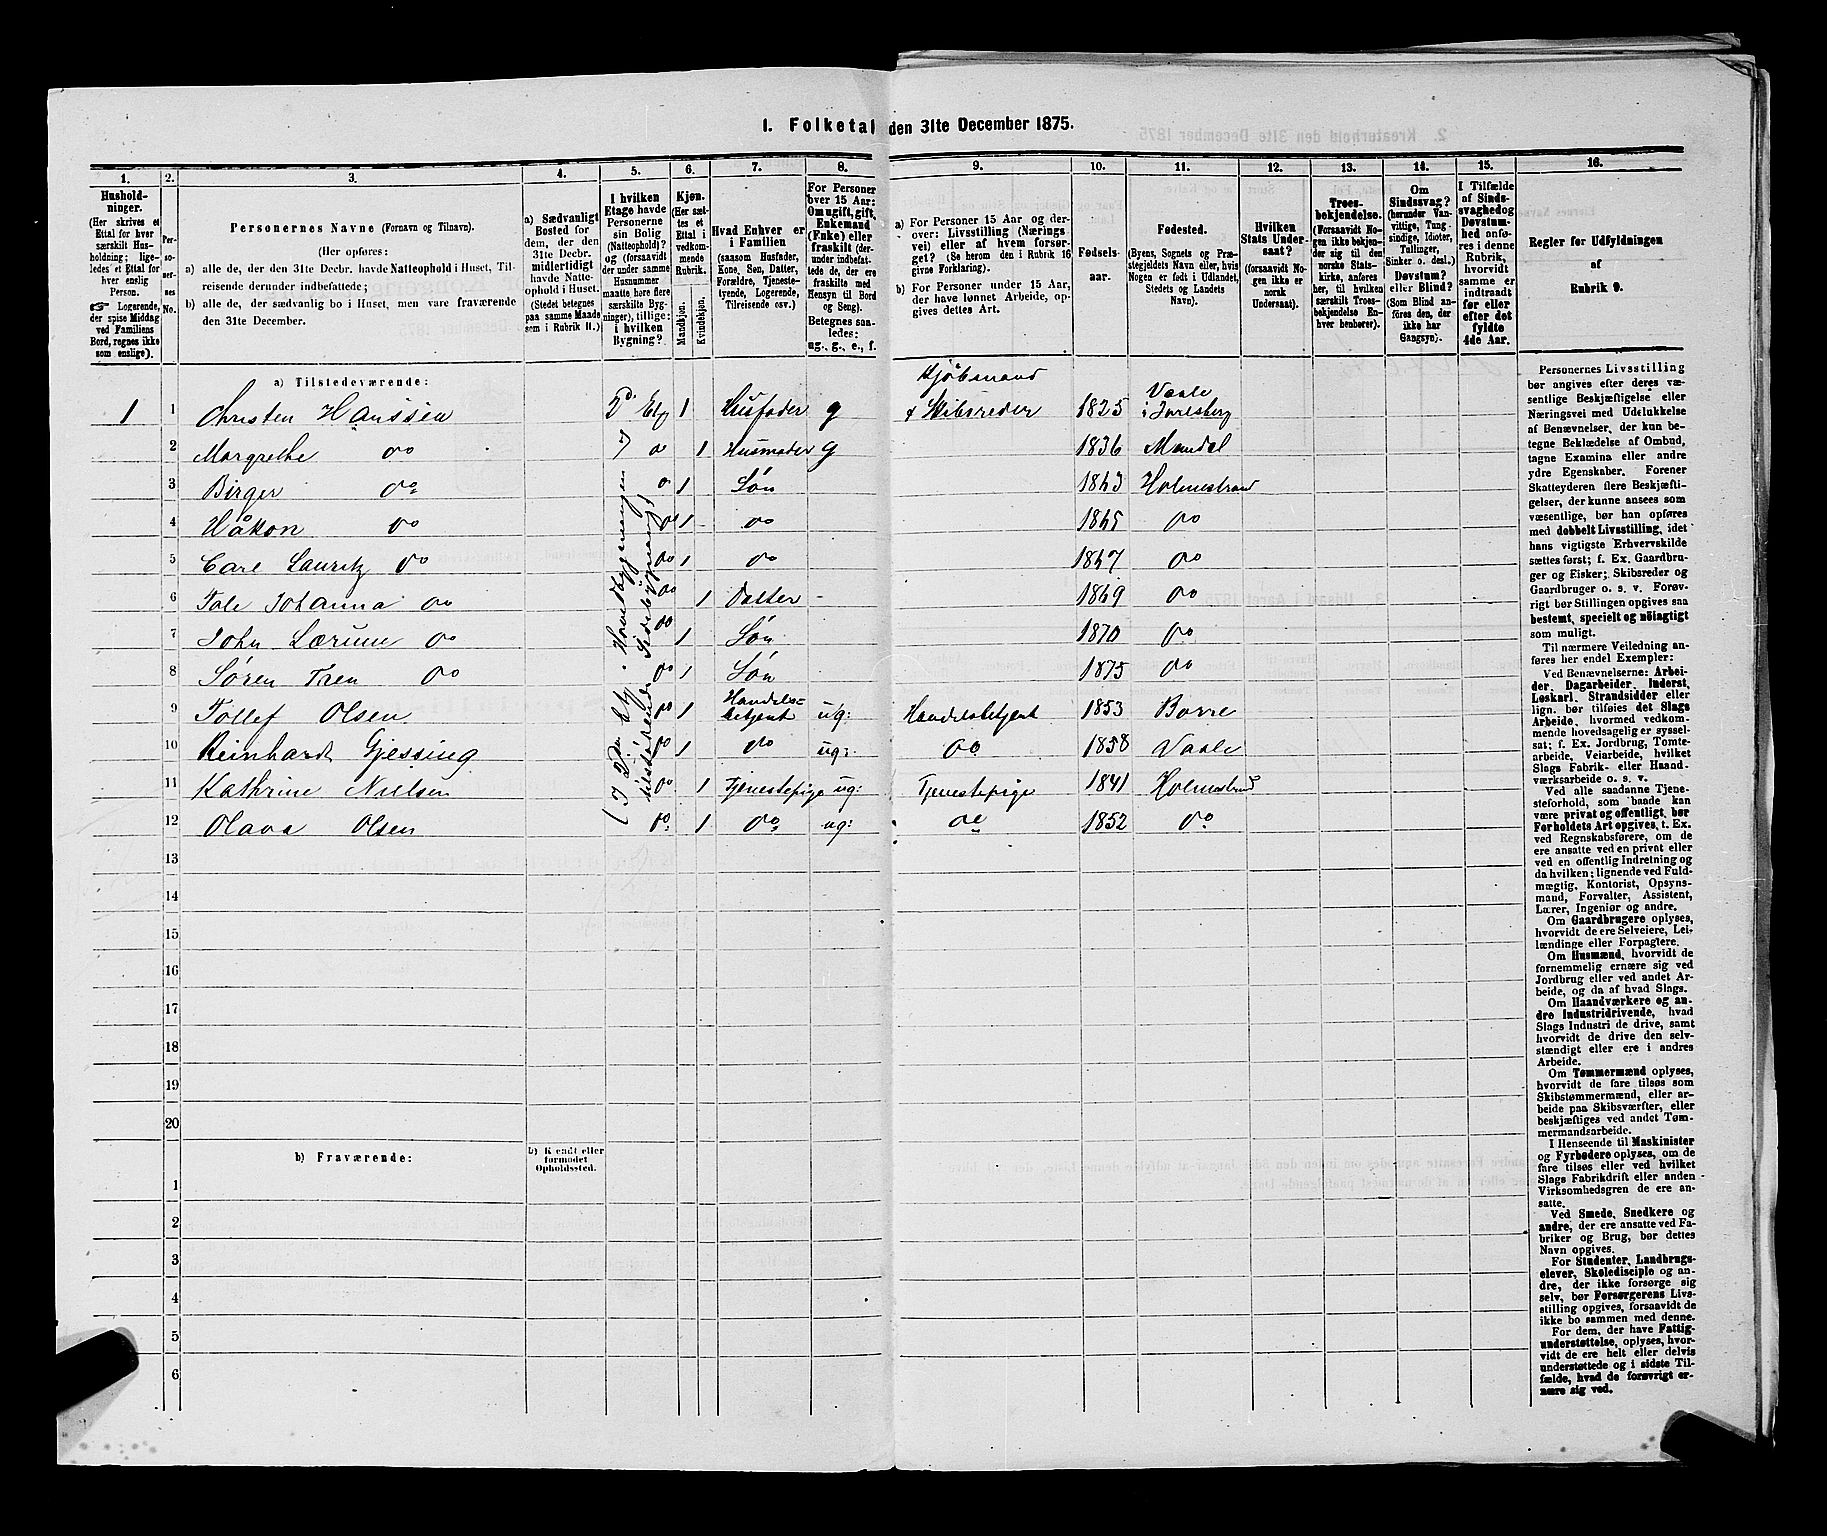 1. Folketal den 31te December 1875.
1.
2.
3.
4.
5.
6.
7.
8.
9.
10.
11.
12.
13.
14.
15.
16.
Hushold-
ninger.
(Her skrives et
Ettal for hver
særskilt Hus-
holdning; lige-
ledes et Ettal for
hver enslig
Person.
☞ Logerende,
der spise Middag
ved Familiens
Bord, regnes ikke
som enslige).
Per-
so-
ner-
nes
No.
Personernes Navne (Fornavn og Tilnavn).
(Her opføres:
a) alle de, der den 31te Decbr. havde Natteophold i Huset, Til-
reisende derunder indbefattede;
b) alle de, der sædvanlig bo i Huset, men vare fraværende
den 31te December.
a) Sædvanligt
Bosted for
dem, der den
31te Decbr.
midlertidigt
havde Natte-
ophold i Huset.
(Stedet betegnes
paa samme Maade
som i Rubrik 11.)
I hvilken
Etage havde
Personerne
sin Bolig
(Natteophold)?
og (forsaavidt
der under samme
Husnummer
maatte høre flere
særskilte Byg-
ninger), tillige:
i hvilken
Bygning?
Kjøn.
(Her sæt-
tes et
Ettal i
vedkom-
mende
Rubrik.
Mandkjøn.
Kvindekjøn.
Hvad Enhver er
i Familien
(saasom Husfader,
Kone, Søn, Datter,
Forældre, Tjeneste-
tyende, Logerende,
Tilreisende osv.)
For Personer
over 15 Aar:
Om ugift, gift,
Enkemand
(Enke) eller
fraskilt (der-
under indbefat-
tede de, der ere
fraskilte med
Hensyn til Bord
og Seng).
Betegnes saa-
ledes:
ug., g., e., f.
a) For Personer 15 Aar og der-
over: Livsstilling (Nærings-
vei) eller af hvem forsør-
get? (Se herom den i Rubrik 16
givne Forklaring).
b) For Personer under 15 Aar,
der have lønnet Arbeide, op-
gives dettes Art.
Fødsels-
aar.
Fødested.
(Byens, Sognets og Præ-
stegjeldets Navn eller, hvis
Nogen er født i Udlandet,
Stedets og Landets
Navn).
Hvilken
Stats Under-
saat?
(forsaavidt No-
gen ikke er
norsk
Undersaat).
Troes-
bekjendelse.
(Forsaavidt No-
gen ikke bekjen-
der sig til den
norske Stats-
kirke, anføres
her, til hvilken
særskilt Troes-
bekjendelse En-
hver henhører).
Om
Sindssvag?
(herunder Van-
vittige, Tung-
sindige, Idioter,
Tullinger,
Sinker o. desl.)
Døvstum?
eller Blind?
(Som Blind an-
føres den, der
ikke har
Gangsyn).
I Tilfælde
af Sinds-
svaghed og
Døvstum-
hed onfø-
res i denne
Rubrik,
hvorvidt
samme er
indtraadt
før eller
efter det
fyldte
4de Aar.
Regler for Udfyldningen
af
Rubrik 9.
a) Tilstedeværende:
1 1 Christen Hanssen Etg 1 Husfader g Kjøbmand & Skibsreder 1825 Vaale i Jarlsberg
2 Margrethe do 1 Husmoder g 1836 Mandal
3 Birger do 1 Søn 1863 Holmestrand
4 Håkon do do 1 do 1865 do
5 Carl Lauritz do do 1 do 1867 do
6 Tale Johanna do do 1 Datter 1869 do
7 John Lærum do do 1 Søn 1870 do
8 Søren Tren do do 1 Søn 1875 do
9 Tollef Olsen do 1 Handels-betjent ug: Handelsbetjent 1853 Borre
10 Reinhardt Gjessing do 1 do ug: do 1858 Vaale
11 Kathrine Nielsen do 1 Tjenestepige ug: Tjenestepige 1841 Holmestrand
12 Olava Olsen do: 1 do ug: do 1852 do
13
14
15
16
17
18
19
20
b) Fraværende:
b) Kendt eller
formodet
Opholdssted.
1
2
3
4
5
6
Personernes Livsstilling
bør angives efter deres væ-
sentlige Beskjæftigelse eller
Næringsvei med Udelukkelse
af Benævnelser, der kun be-
tegne Beklædelse af Ombud,
tagne Examina eller andre
ydre Egenskaber. Forener
Skatteyderen flere Beskjæfti-
gelser, der kunne ansees som
væsentlige, bør han opføres
med dobbelt Livsstilling, idet
hans vigtigste Erhvervskilde
sættes først; f. Ex. Gaardbru-
ger og Fisker; Skibsreder og
Gaardbruger o. s. v. Forøv-
rigt bør Stillingen opgives saa
bestemt, specielt og nöiagtigt
som muligt.
Til nærmere Veiledning an-
føres her endel Exempler:
Ved Benævnelserne: Arbei-
der, Dagarbeider, Inderst,
Løskarl, Strandsidder eller
lign. bør tilføies det Slags
Arbeide, hvormed vedkom-
mende hovedsagelig er syssel-
sat; f. Ex. Jordbrug, Tomte-
arbeide, Veiarbeide, hvilket
Slags Fabrik- eller Haand-
værksarbeide o. s. v.
Ved alle saadanne Tjene-
steforhold, som baade kan
være privat og offentligt, bør
Forholdets Art opgives, t. Ex.
ved Regnskabsførere, om de
ere ansatte ved en privat eller
ved en offentlig Indretning og
da hvilken; lignende ved Fuld-
mægtig, Kontorist, Opsyns-
mand, Forvalter, Assistent,
Lærer, Ingeniør og andre.
Om Gaardbrugere oplyses,
hvorvidt de ere Selveiere, Lei-
lændinge eller Forpagtere.
Om Husmænd, hvorvidt de
fornemmelig ernære sig ved
Jordbrug eller ved andet Ar-
beide, og da af hvad Slags.
Om Haandværkere og an-
dre Industridrivende, hvad
Slags Industri de drive, samt
hvorvidt de drive den selv-
stændigt eller ere i andres
Arbeide.
Om Tømmermænd oplyses,
hvorvidt de fare tilsøs som
Skibstømmermænd, eller ar-
beide paa Skibsværfter, eller
beskjæftiges ved andet Tøm-
mermandsarbeide.
I Henseende til Maskinister
og Fyrbødere oplyses, om de
fare tilsøs eller ved hvilket
Slags Fabrikdrift eller anden
Virksomhedsgren de ere an-
satte.
Ved Smede, Snedkere og
andre, der ere ansatte ved Fa-
briker og Brug, bør dettes
Navn opgives.
For Studenter, Landbrugs-
elever, Skoledisciple og an-
dre, der ikke forsørge sig
selv, bør Forsørgerens Livs-
stilling opgives, forsaavidt de
ikke bo sammen med denne.
For dem, der have Fattig-
understøttelse, oplyses, hvor-
vidt de ere helt eller delvis
understøttede og i sidste Til-
fælde, hvad de forøvrigt er-
nære sig ved.